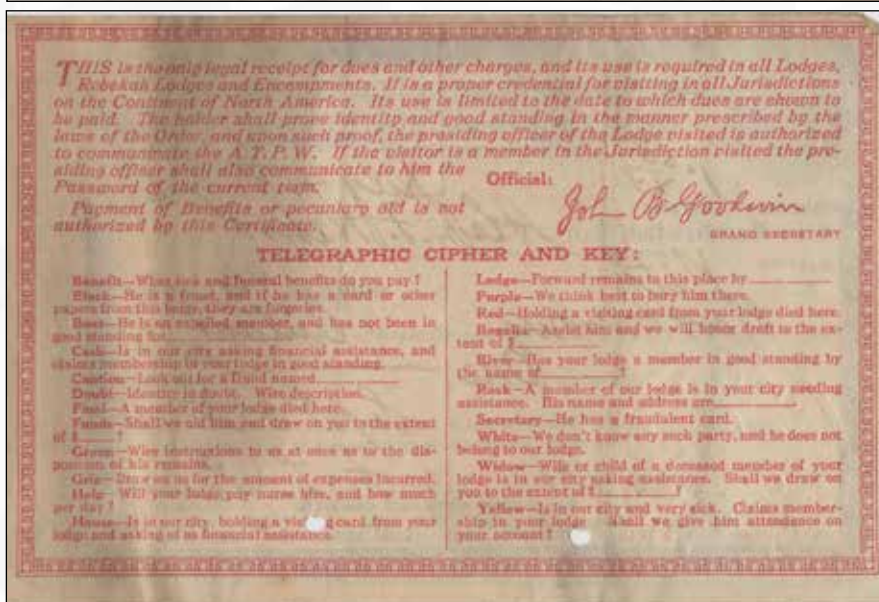 THIS is the only legal receipt for dues and other charges, and its use is required in all Lodges,
Rebekah Lodges and Encampments. It is a proper credential for visiting in all Jurisdictions
on the Continent of North America. Its use is limited to the date to which dues are shown to
be paid. The holder shall prove identity and good standing in the manner prescribed by the
laws of the Order, and upon such proof, the presiding officer of the Lodge visited is authorized
to communicate the A. T. P. W. If the visitor is a member in the Jurisdiction visited the pre-
siding officer shall also communicate to him the
Password of the current term.
Payment of Benefits or pecuniary aid is not
authorized by this Certificate.
Official:
John B Goodwin
GRAND SECRETARY
TELEGRAPHIC CIPHER AND KEY:
Benefit—What sick and funeral benefits do you pay?
Black—He is a fraud, and if he has a card or other
papers from this lodge, they are forgeries.
—He is an expelled member, and has not been in
good standing for
Cash—Is in our city asking financial assistance, and
claims membership in your lodge in good standing.
Caution—Look out for a fraud named
Doubt—Identity in doubt. Wire description.
Final—A member of your lodge died here.
Funds—Shall we aid him and draw on you to the extent
of $ ?
Grave—Wire instructions to us at once as to the dis-
position of his remains.
Grip—Draw on us for the amount of expenses incurred.
Help—Will your lodge pay nurse hire, and how much
per day?
House—Is in our city, holding a visiting card from your
lodge and asking of us financial assistance.
Lodge—Forward remains to this place by
Purple—We think best to bury him there.
Red—Holding a visiting card from your lodge died here.
Regalia—Assist him and we will honor draft to the ex-
tent of $
River—Has your lodge a member in good standing by
the name of ?
Rook—A member of our lodge is in your city needing
assistance. His name and address are
Secretary—He has a fraudulent card.
White—We don't know any such party, and he does not
belong to our lodge.
Widow—Wife or child of a deceased member of your
lodge is in our city asking assistance. Shall we draw on
you to the extent of $ ?
Yellow—Is in our city and very sick. Claims member-
ship in your lodge. Shall we give him attendance on
your account?